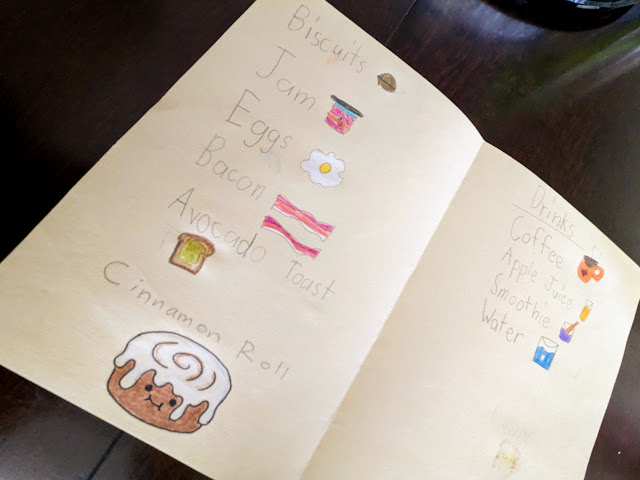 Biscuits
Jam
Eggs
Bacon
Avocado Toast
Cinnamon Roll
Drinks
Coffee
Apple Juice
Smoothie
Water